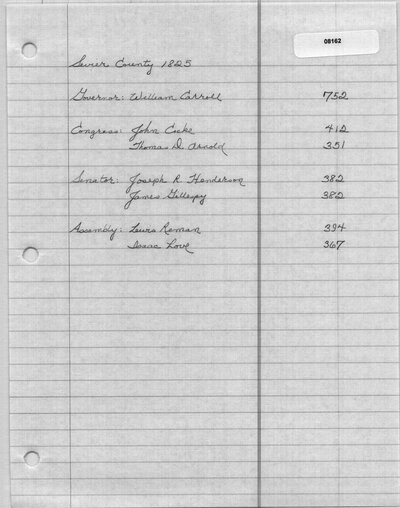 08162
Sevier County 1825
Governor: William Carroll 752
Congress: John Cocke 412
Thomas D Arnold 351
Senator: Joseph R Henderson 382
James Gillespy 382
Assembly: Lewis Reman 394
Isaac Love 367